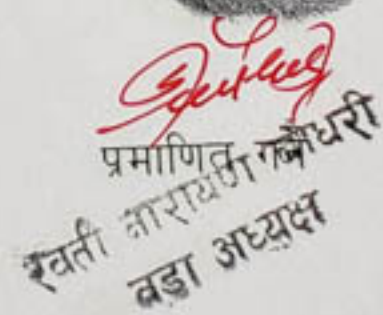 प्रमाणित गर्ने
रवती नारायण चौधरी
वडा अध्यक्ष